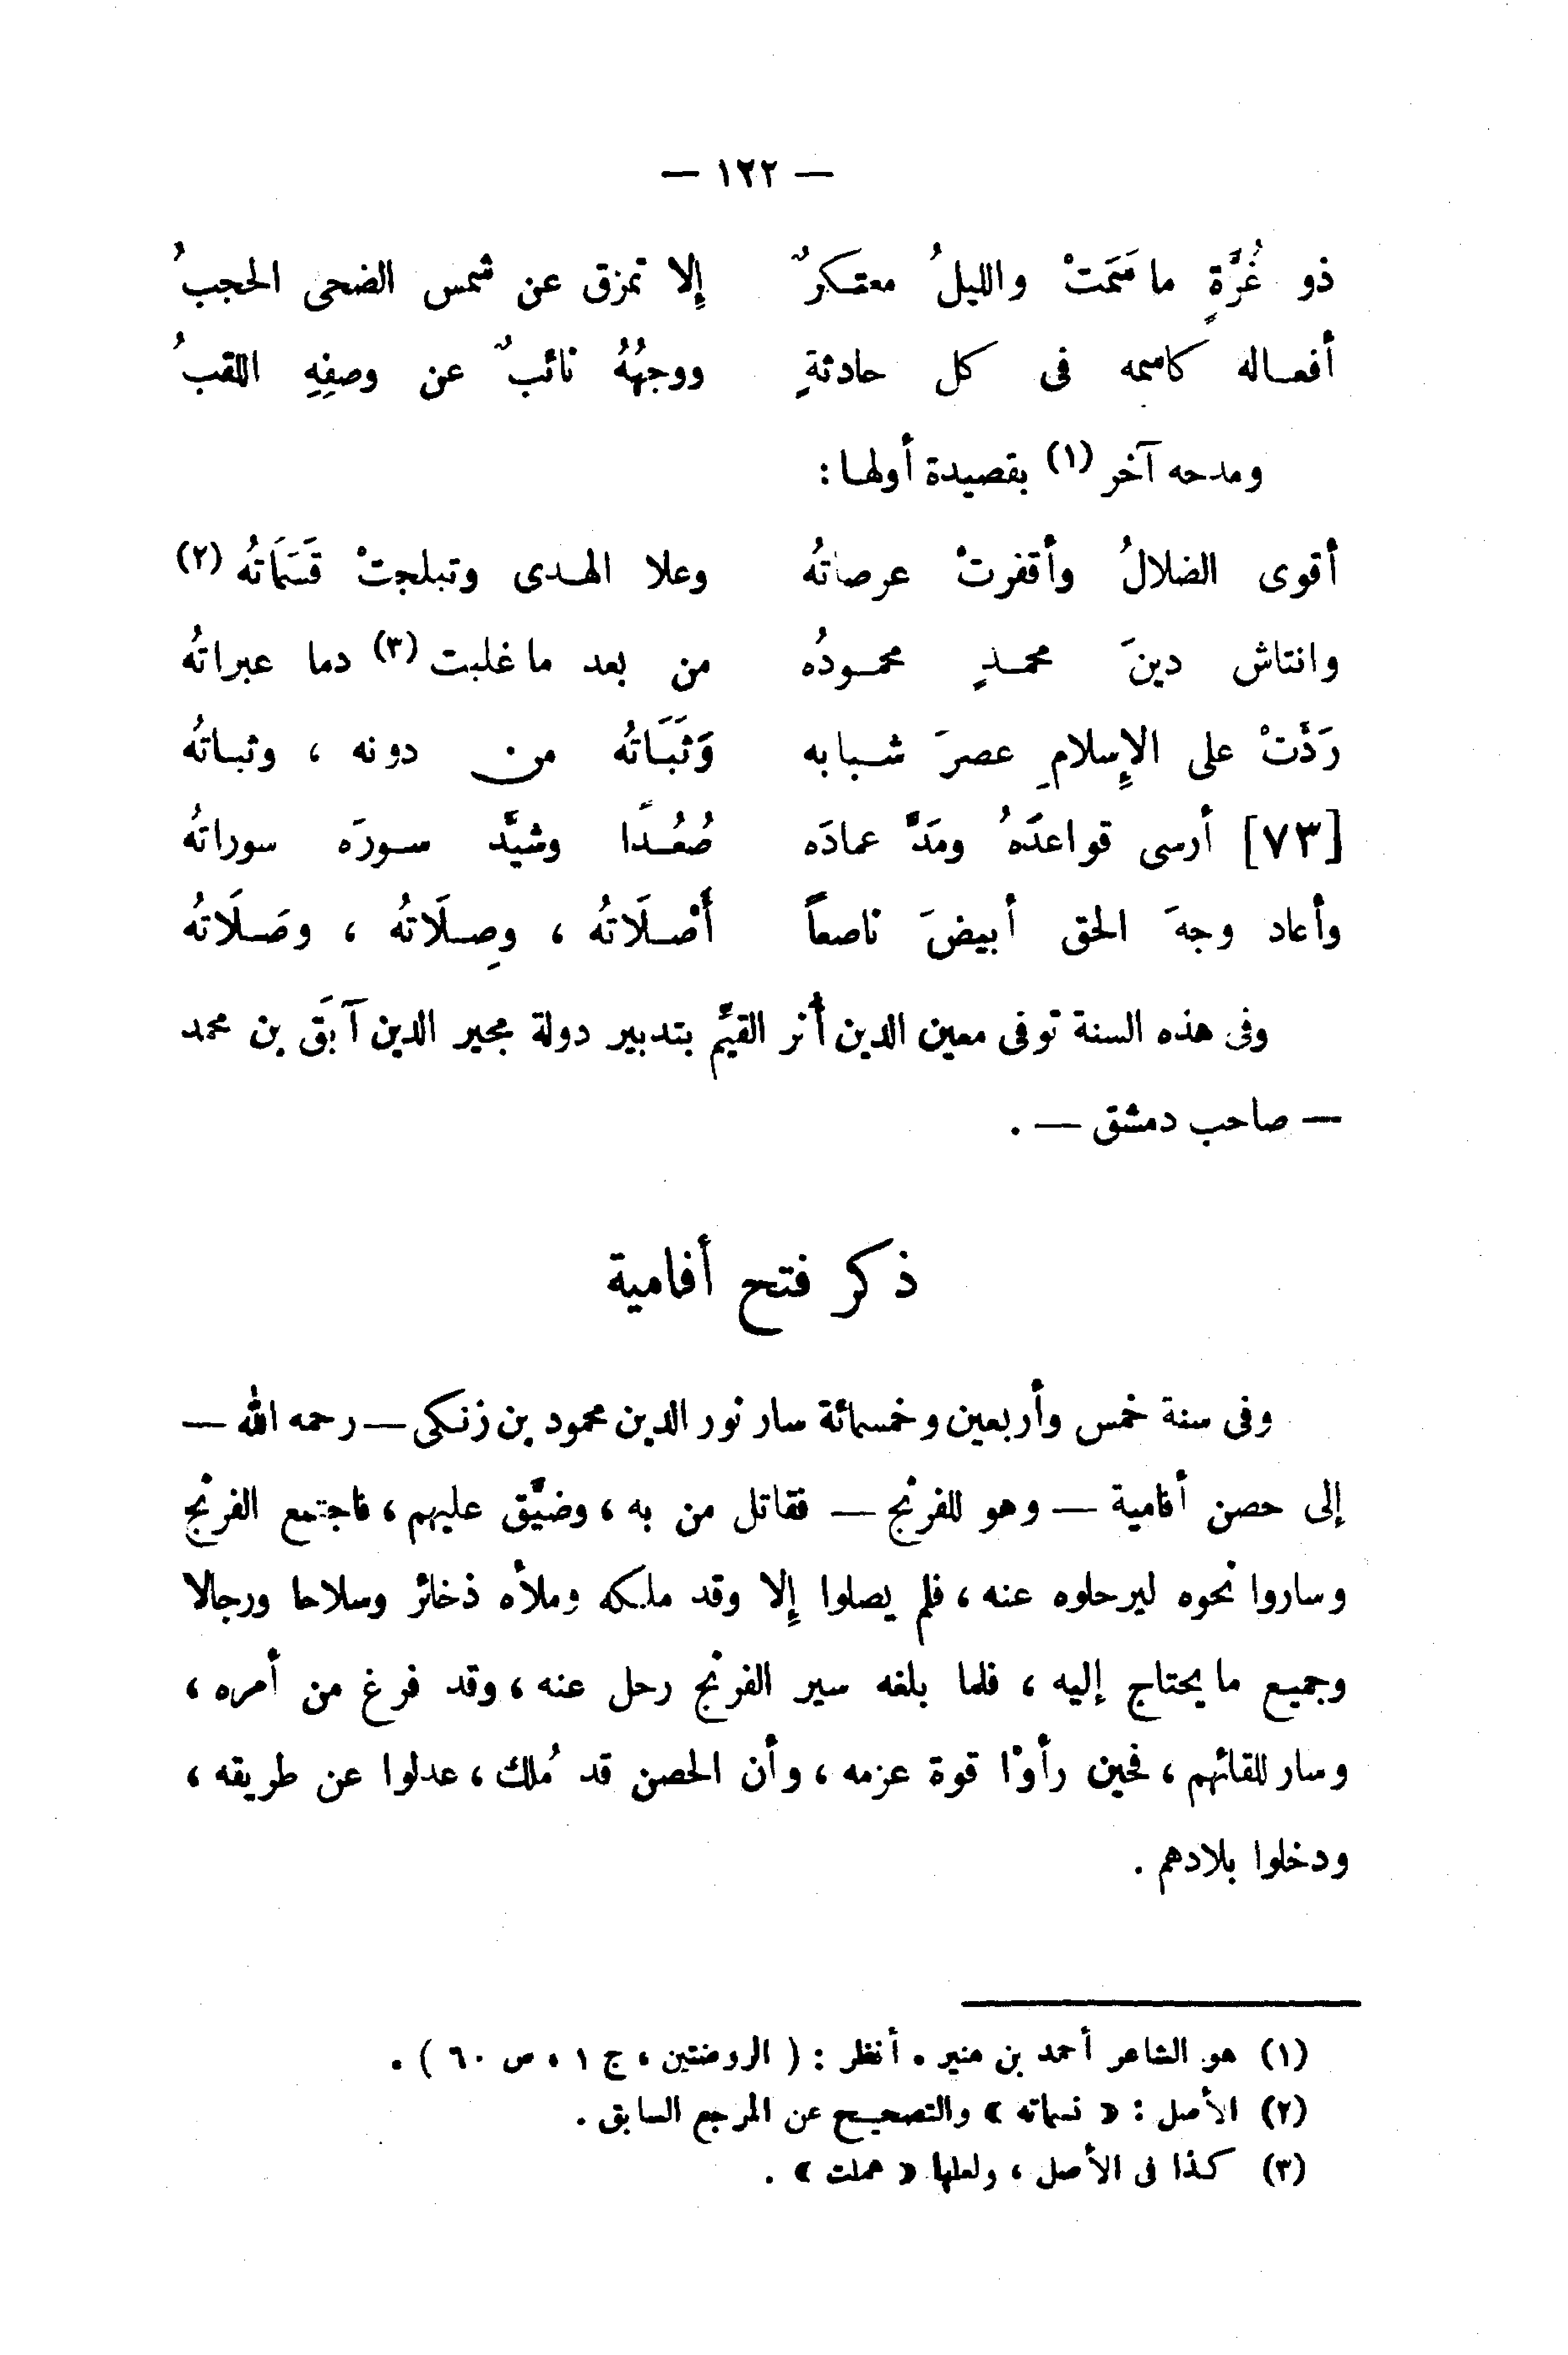 — ١٢٢ —
ذو غُرَّةٍ ما سَمَتْ والليلُ معتكرٌ إلا تمزق عن شمس الضحى الحجبُ
أفعاله كاسمه فى كل حادثةٍ ووجهُهُ نائبٌ عن وصفِهِ اللقبُ
ومدحه آخر (١) بقصيدة أولها :
أقوى الضلالُ وأقفرتْ عرصاتُه وعلا الهدى وتبلجتْ قَسَمَاتُه (٢)
وانتاش دينَ محمدٍ محمودُه من بعد ما غلبت (٣) دما عبراتُه
رَدَّتْ على الإسلامِ عصرَ شبابه وَثَبَاتُه من دونه ، وثباتُه
[٧٣] أرسى قواعدَهُ ومَدَّ عمادَه صُعُدًا وشيَّد سورَه سوراتُه
وأعاد وجهَ الحق أبيضَ ناصعاً أَصْلَاتُه ، وصِلَاتُه ، وصَلَاتُه
وفى هذه السنة توفى معين الدين أُنر القيِّم بتدبير دولة مجير الدين آبَق بن محمد
— صاحب دمشق — .
ذكر فتح أفامية
وفى سنة خمس وأربعين وخمسمائة سار نور الدين محمود بن زنكى — رحمه الله —
إلى حصن أفامية — وهو للفرنج — فقاتل من به ، وضيَّق عليهم ، فاجتمع الفرنج
وساروا نحوه ليرحلوه عنه ، فلم يصلوا إلا وقد ملكه وملأه ذخائر وسلاحا ورجالا
وجميع ما يحتاج إليه ، فلما بلغه سير الفرنج رحل عنه ، وقد فرغ من أمره ،
وسار للقائهم ، فحين رأوْا قوة عزمه ، وأن الحصن قد مُلك ، عدلوا عن طريقه ،
ودخلوا بلادهم .
(١) هو الشاعر أحمد بن منير . أنظر : ( الروضتين ، ج ١ ، ص ٦٠ ) .
(٢) الأصل : « نسماته » والتصحيح عن المرجع السابق .
(٣) كذا فى الأصل ، ولعلها « هملت » .